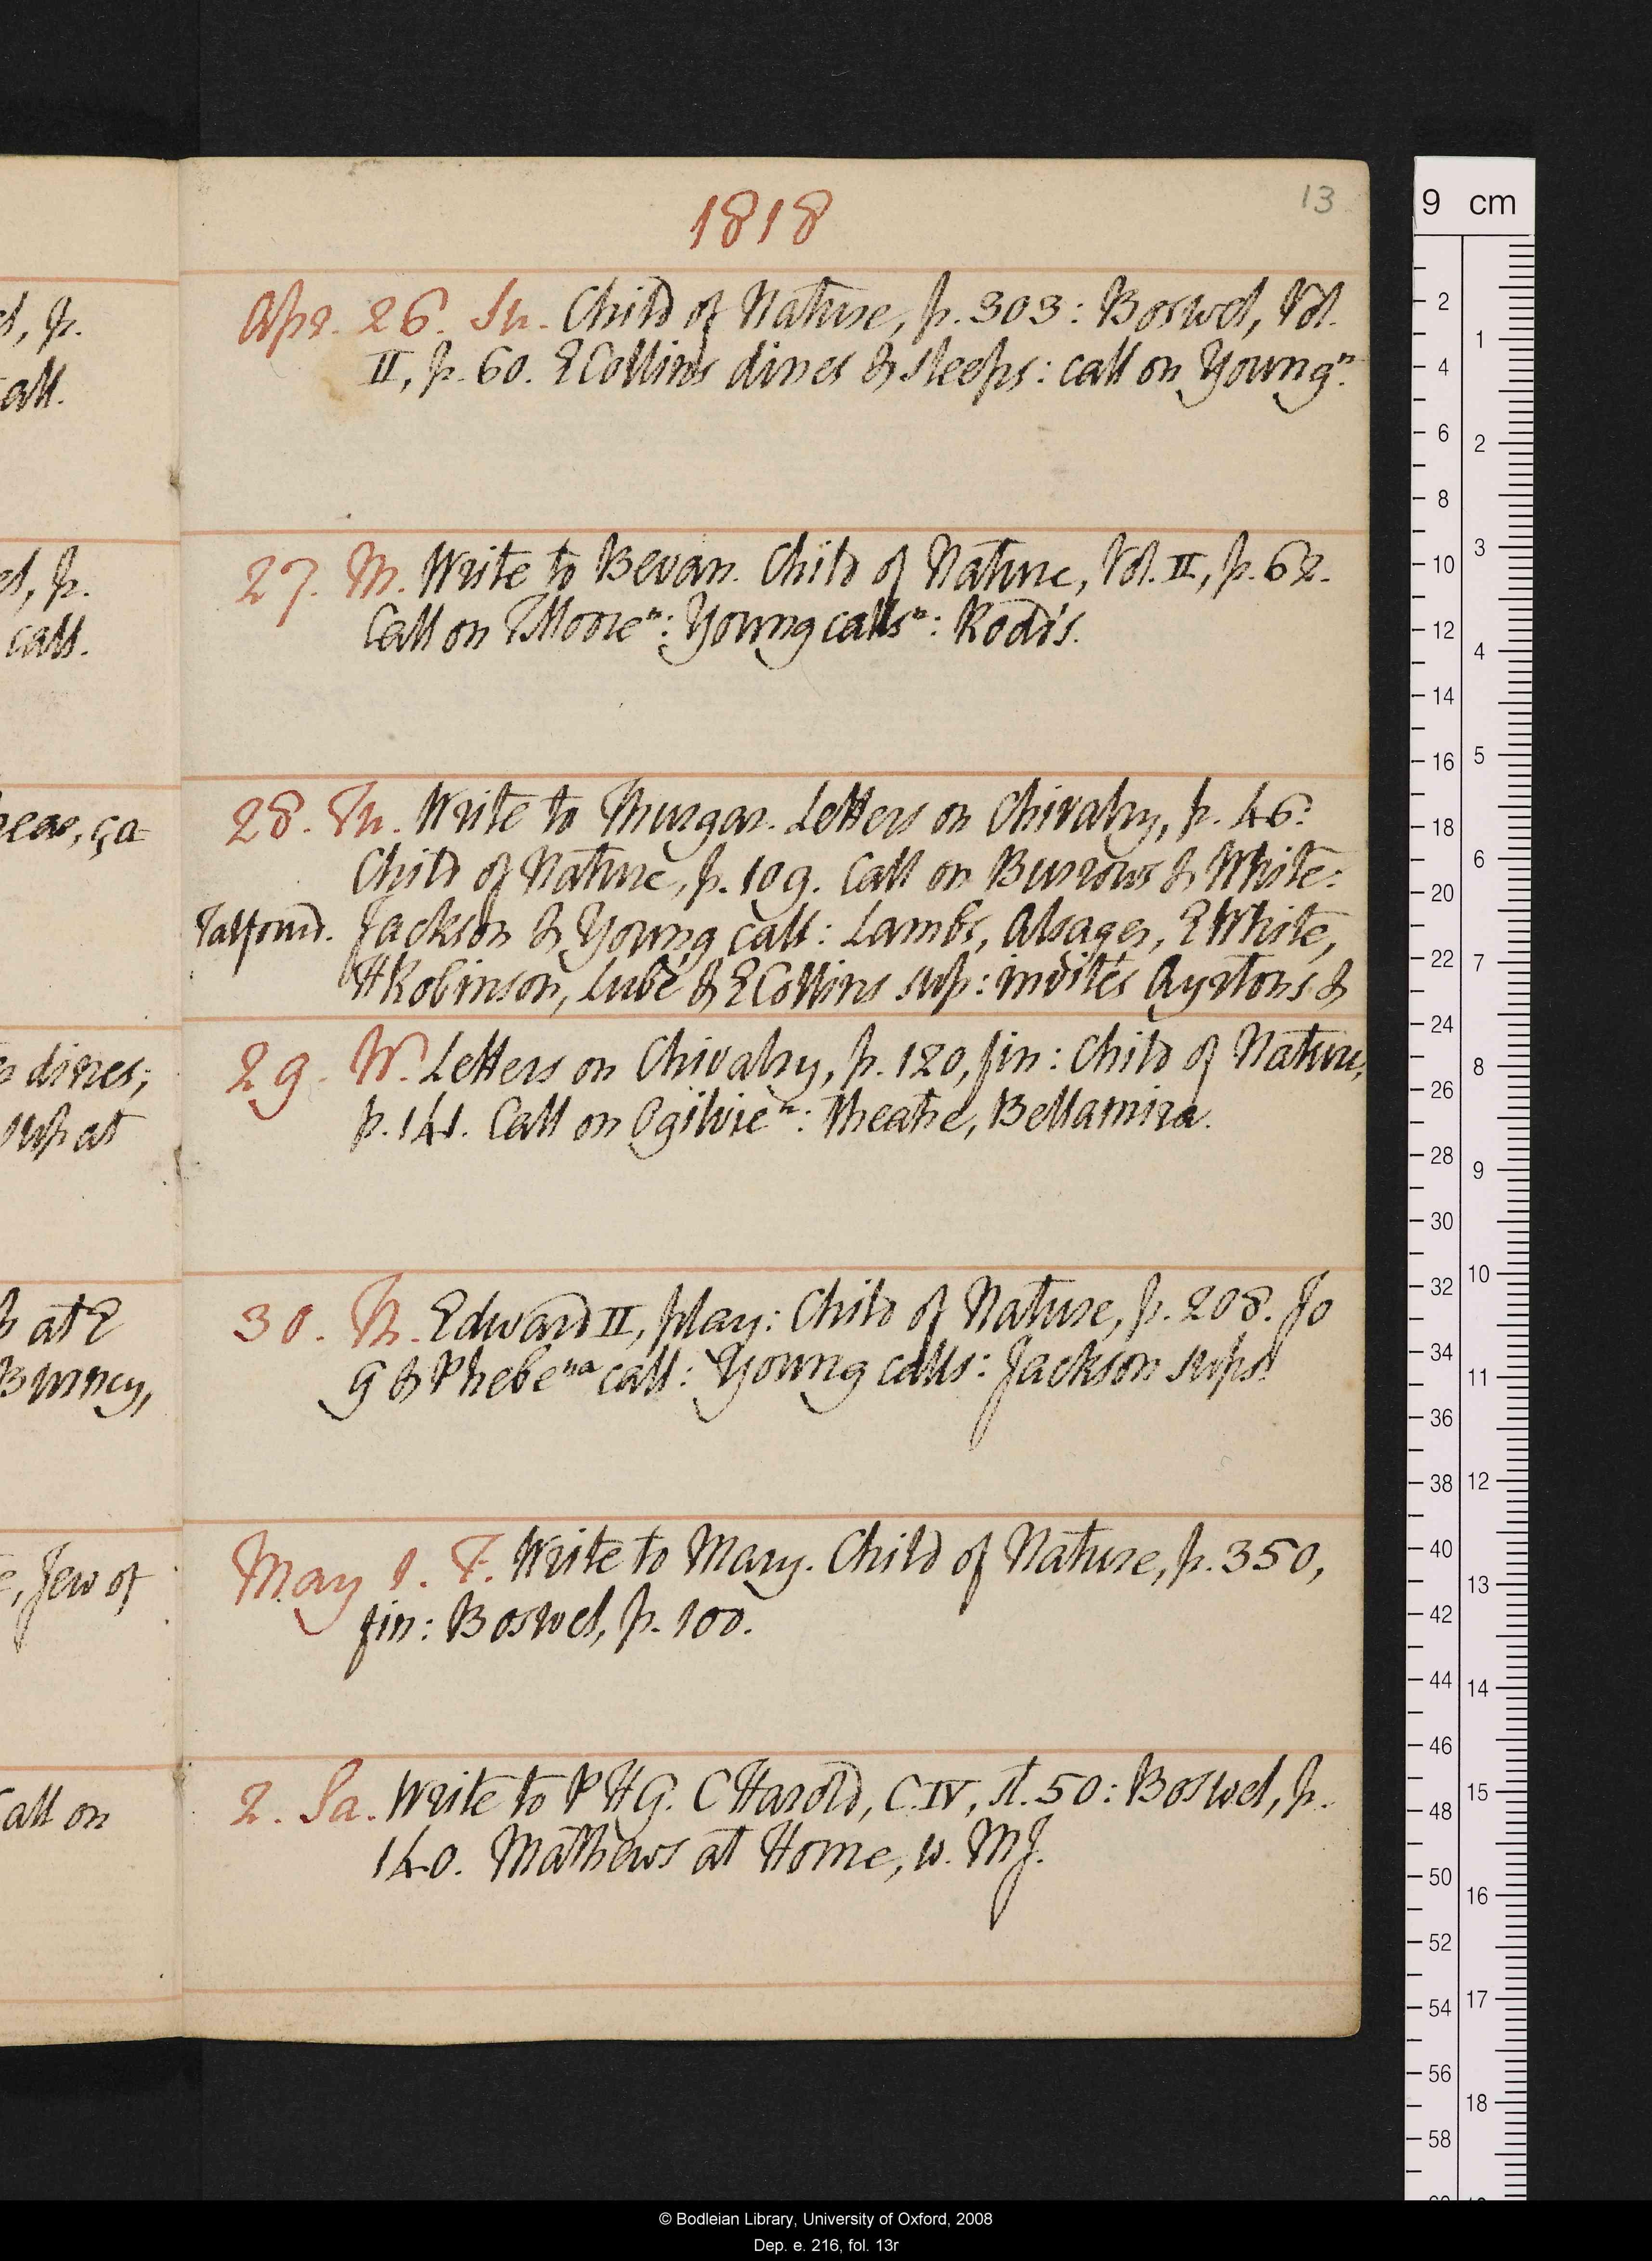 1818
13
Apr. 26. Su. Child of Nature, p. 303: Boswel, Vol.
II, p. 60. E Collins dines & sleeps: call on Young n.
27. M. Write to Bevan. Child of Nature, Vol. II, p. 62.
Call on T Moore n: Young calls n: Rodd's.
28. Tu. Write to Thurgar. Letters on Chivalry, p. 46:
Child of Nature, p. 109. Call on Burrows & White:
Talfourd. Jackson & Young call: Lambs, Alsager, E White,
H Robinson, Lubé & E Collins sup: invités Ayrtons &
29. W. Letters on Chivalry, p. 120, fin: Child of Nature,
p. 141. Call on Ogilvie n: theatre, Bellamira.
30. Th. Edward II, play: Child of Nature, p. 208. Jo
G & Phebe na call: Young calls: Jackson sups.
May 1. F. Write to Mary. Child of Nature, p. 350,
fin: Boswel, p. 100.
2. Sa. Write to P H G. C Harold, C. IV, st. 50: Boswel, p.
140. Mathews at Home, w. M J.
d, p.
all.
d, p.
call.
ça-
dines;
sup at
at E
Burney,
Jew of
Call on
9 cm
2
4
6
8
10
12
14
16
18
20
22
24
26
28
30
32
34
36
38
40
42
44
46
48
50
52
54
56
58
1
2
3
4
5
6
7
8
9
10
11
12
13
14
15
16
17
18
© Bodleian Library, University of Oxford, 2008
Dep. e. 216, fol. 13r